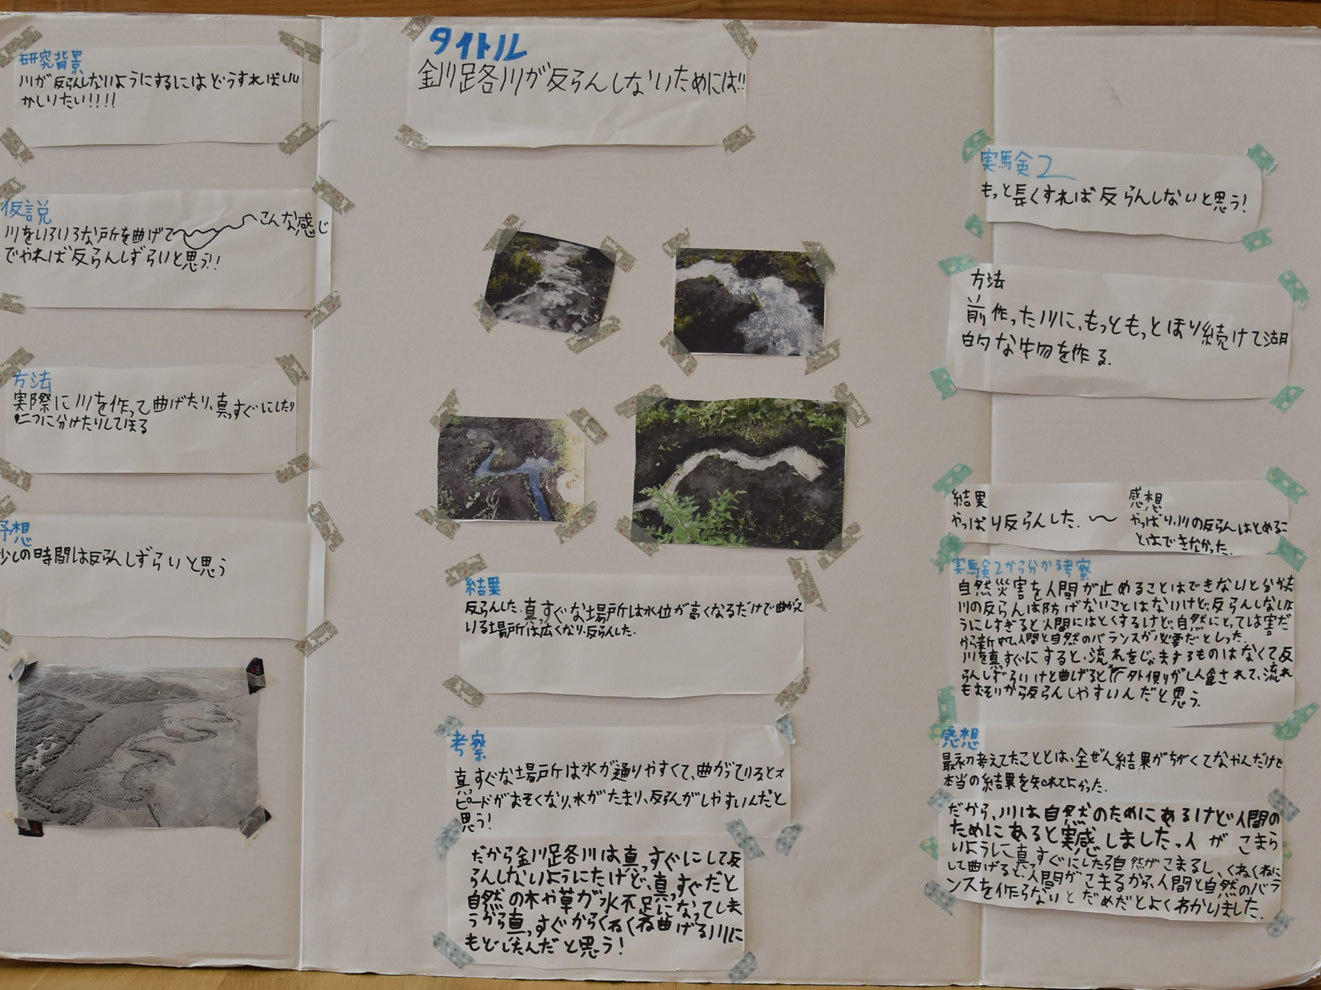 タイトル
釧路川が反らんしないためには!!
研究背景
川が反らんしないようにするにはどうすればいい
かしりたい!!!!
仮説
川をいろいろな戸所を曲げて〜こんな感じ
でやれば反らんしずらいと思う!!
方法
実際に川を作って曲げたり、真っすぐにしたり
二つに分けたりしてほる
予想
少しの時間は反らんしずらいと思う
結果
反らんした。真っすぐな場所は水位が高くなるだけで曲がって
いる場所は広くなり、反らんした。
考察
真っすぐな場所は水が通りやすくて、曲がっているとス
ピードがおそくなり、水がたまり、反らんがしやすいんだと
思う!
だから釧路川は真っすぐにして反
らんしないようにしたけど、真っすぐだと
自然の木や草が水不足になってしま
うから真っすぐからくねくね曲げる川に
もどしたんだと思う!
実験2
もっと長くすれば反らんしないと思う!
方法
前作った川に、もっともっとほり続けて湖
的な物を作る。
結果
やっぱり反らんした。〜
感想
やっぱり、川の反らんはとめるこ
とはできなかった。
実験2から分かる考察
自然災害を人間が止めることはできないと分かった
川の反らんは防げないことはないけど、反らんしないよ
うにしすぎると人間にはとくするけど、自然にとっては害だ
から人間と自然のバランスが必要だとしった。
川を真っすぐにすると、流れをじゃまするものはなくて反
らんしずらいけど曲げると外側がしん食されて、流れ
もおそいから反らんしやすいんだと思う。
感想
最初考えてたこととは、全ぜん結果がちがくてなやんだけど
本当の結果を知れてよかった。
だから、川は自然のためにあるけど人間の
ためにあると実感しました。人がこまら
いように真っすぐにしたら自然がこまるし、くねくねに
して曲げると、人間がこまるから、人間と自然のバラ
ンスを作らないとだめだとよくわかりました。